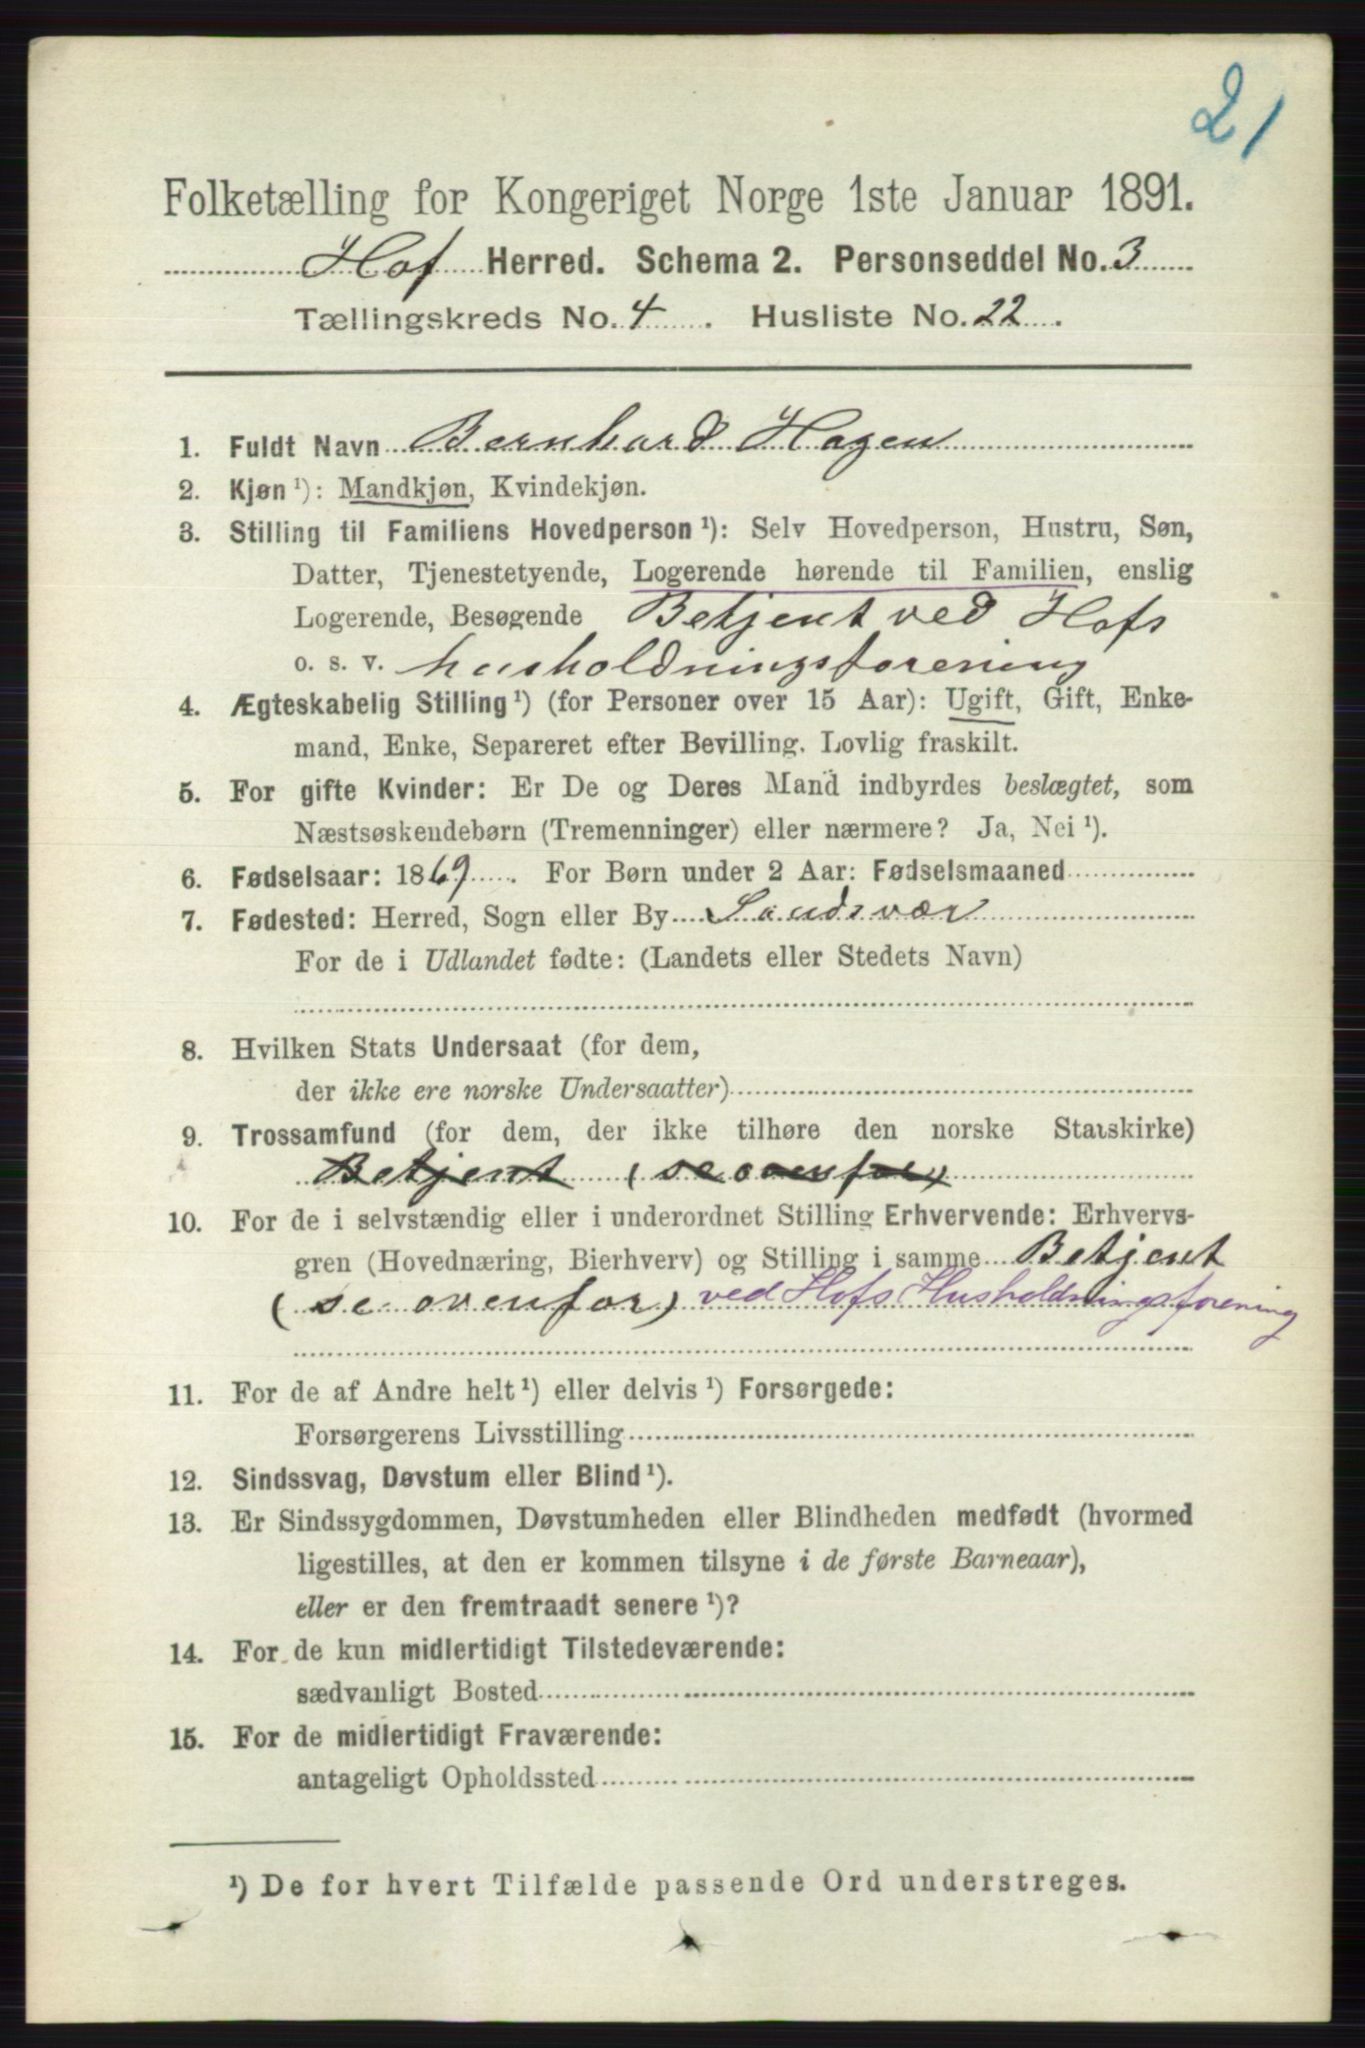 21
Folketælling for Kongeriget Norge 1ste Januar 1891.
Hof Herred. Schema 2. Personseddel No. 3
Tællingskreds No. 4 . Husliste No. 22 .
1. Fuldt Navn Bernhard Hagen
2. Kjøn ¹): Mandkjøn, Kvindekjøn.
3. Stilling til Familiens Hovedperson ¹): Selv Hovedperson, Hustru, Søn,
Datter, Tjenestetyende, Logerende hørende til Familien, enslig
Logerende, Besøgende Betjent ved Hofs
o. s. v. husholdningsforening
4. Ægteskabelig Stilling ¹) (for Personer over 15 Aar): Ugift, Gift, Enke-
mand, Enke, Separeret efter Bevilling. Lovlig fraskilt.
5. For gifte Kvinder: Er De og Deres Mand indbyrdes beslægtet, som
Næstsøskendebørn (Tremenninger) eller nærmere? Ja, Nei ¹).
6. Fødselsaar: 1869 . For Børn under 2 Aar: Fødselsmaaned
7. Fødested: Herred, Sogn eller By Sandsvær
For de i Udlandet fødte: (Landets eller Stedets Navn)
8. Hvilken Stats Undersaat (for dem,
der ikke ere norske Undersaatter)
9. Trossamfund (for dem, der ikke tilhøre den norske Statskirke)
Betjent (se ovenfor)
10. For de i selvstændig eller i underordnet Stilling Erhvervende: Erhvervs-
gren (Hovednæring, Bierhverv) og Stilling i samme Betjent
(se ovenfor) ved Hofs Husholdningsforening
11. For de af Andre helt ¹) eller delvis ¹) Forsørgede:
Forsørgerens Livsstilling
12. Sindssvag, Døvstum eller Blind ¹).
13. Er Sindssygdommen, Døvstumheden eller Blindheden medfødt (hvormed
ligestilles, at den er kommen tilsyne i de første Barneaar),
eller er den fremtraadt senere ¹)?
14. For de kun midlertidigt Tilstedeværende:
sædvanligt Bosted
15. For de midlertidigt Fraværende:
antageligt Opholdssted
¹) De for hvert Tilfælde passende Ord understreges.